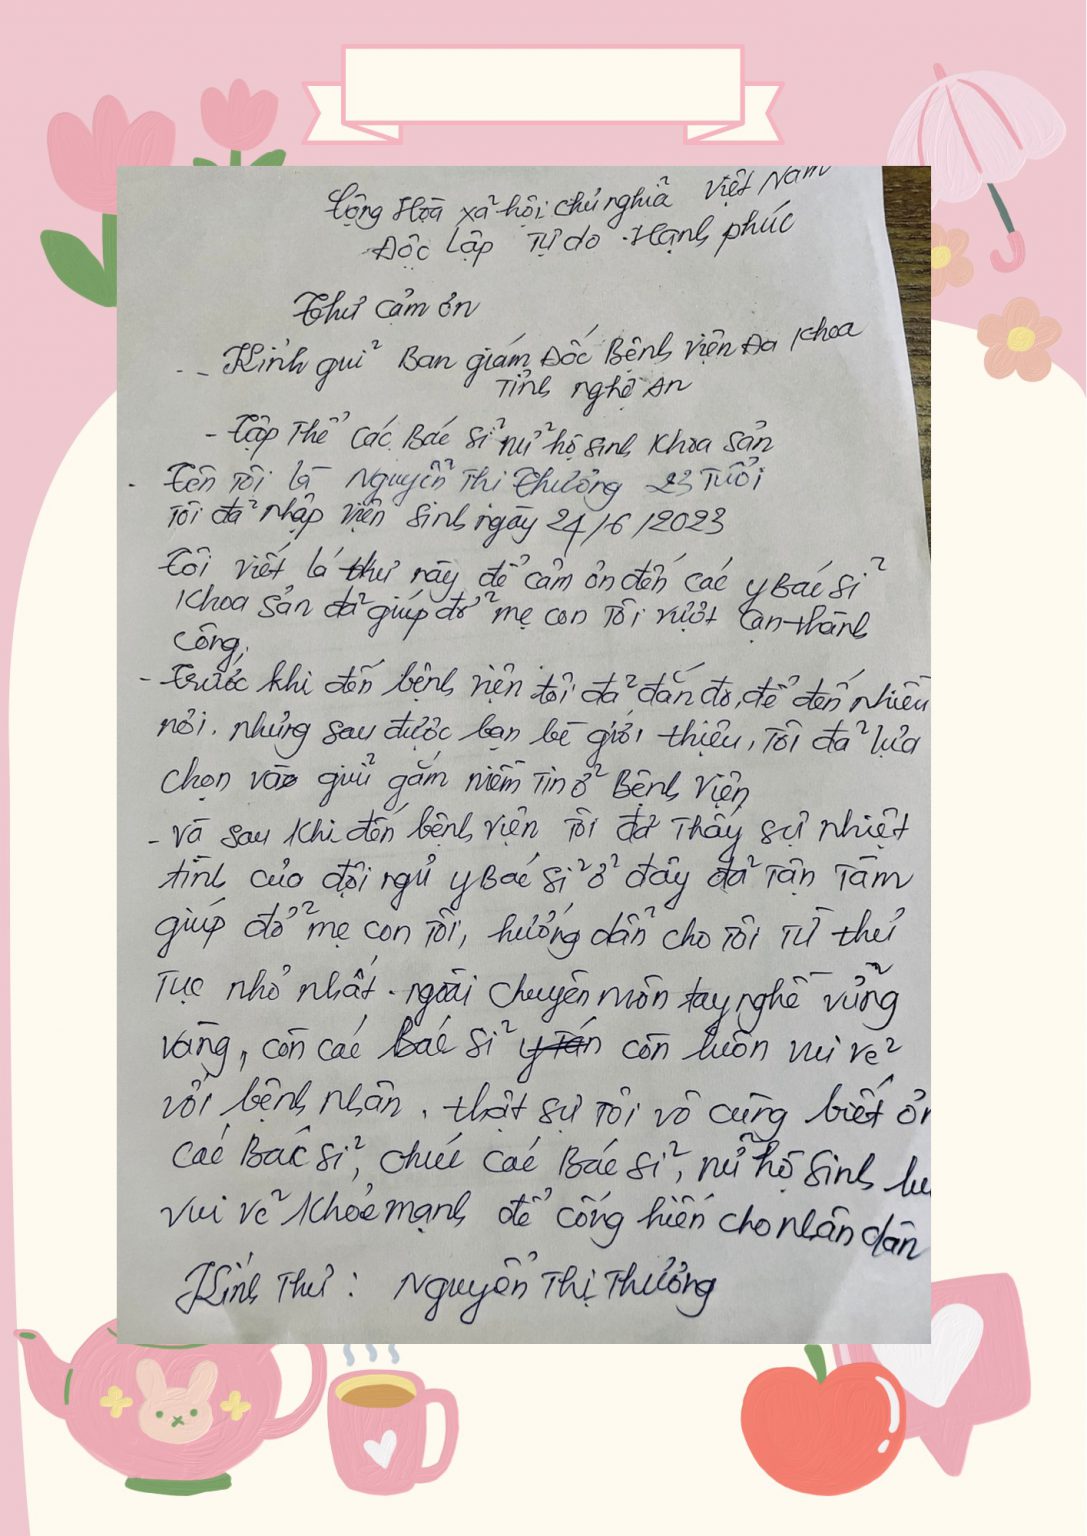 Cộng Hòa xã hội chủ nghĩa Việt Nam
Độc lập Tự do Hạnh phúc
Thư cảm ơn
-- Kính gửi Ban giám Đốc Bệnh viện Đa khoa
Tỉnh nghệ An
- Tập Thể Các Bác Sĩ nữ hộ sinh Khoa Sản
- Tên Tôi là Nguyễn Thị Thưởng 23 Tuổi
Tôi đã nhập viện Sinh ngày 24/6/2023
Tôi viết lá thư này để cảm ơn đến các y Bác Sĩ
Khoa Sản đã giúp đỡ mẹ con Tôi vượt cạn thành
Công,
- Trước khi đến bệnh viện tôi đã đắn đo, để đến nhiều
nơi. nhưng sau được bạn bè giới thiệu, Tôi đã lựa
chọn vào giử gắm niềm Tin ở Bệnh Viện
- và sau khi đến bệnh viện Tôi đã Thấy sự nhiệt
tình của đội ngũ y Bác Sĩ ở đây đã Tận Tâm
giúp đỡ mẹ con Tôi, hướng dẫn cho Tôi Từ thủ
Tục nhỏ nhất. ngoài chuyên môn tay nghề vững
vàng, còn các Bác Sĩ còn luôn vui vẻ
với bệnh nhân. thật sự Tôi vô cùng biết ơn
các Bác Sĩ, chúc các Bác Sĩ, nữ hộ Sinh
vui vẻ Khỏe mạnh để cống hiến cho nhân dân
Kính Thư : Nguyễn Thị Thưởng